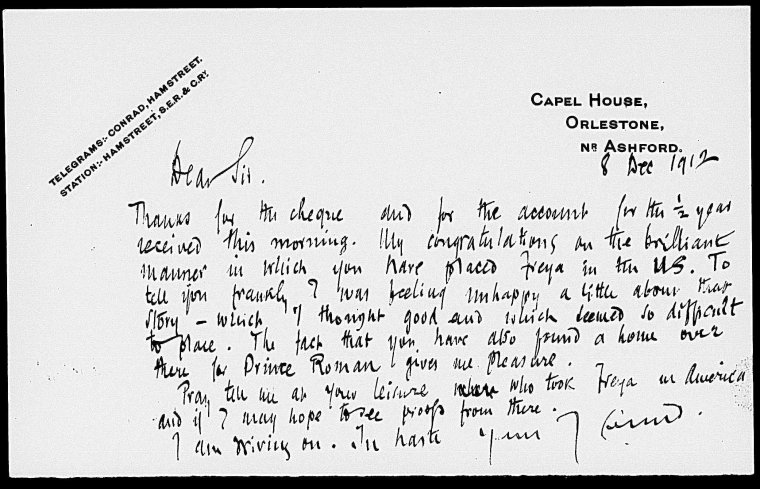 TELEGRAMS:- CONRAD, HAMSTREET.
STATION:- HAMSTREET, S.E.R. & C.RY.
CAPEL HOUSE,
ORLESTONE,
NR ASHFORD.
8 Dec 1912
Dear Sir.
Thanks for the cheque and for the account for the ½ year
received this morning. My congratulations on the brilliant
manner in which you have placed Freya in the US. To
tell you frankly I was feeling unhappy a little about that
story – which I thought good and which seemed so difficult
to place. The fact that you have also found a home over
there for Prince Roman gives me pleasure.
Pray tell me at your leisure who took Freya in America
and if I may hope to see proofs from there.
I am driving on. In haste Yours J Conrad.